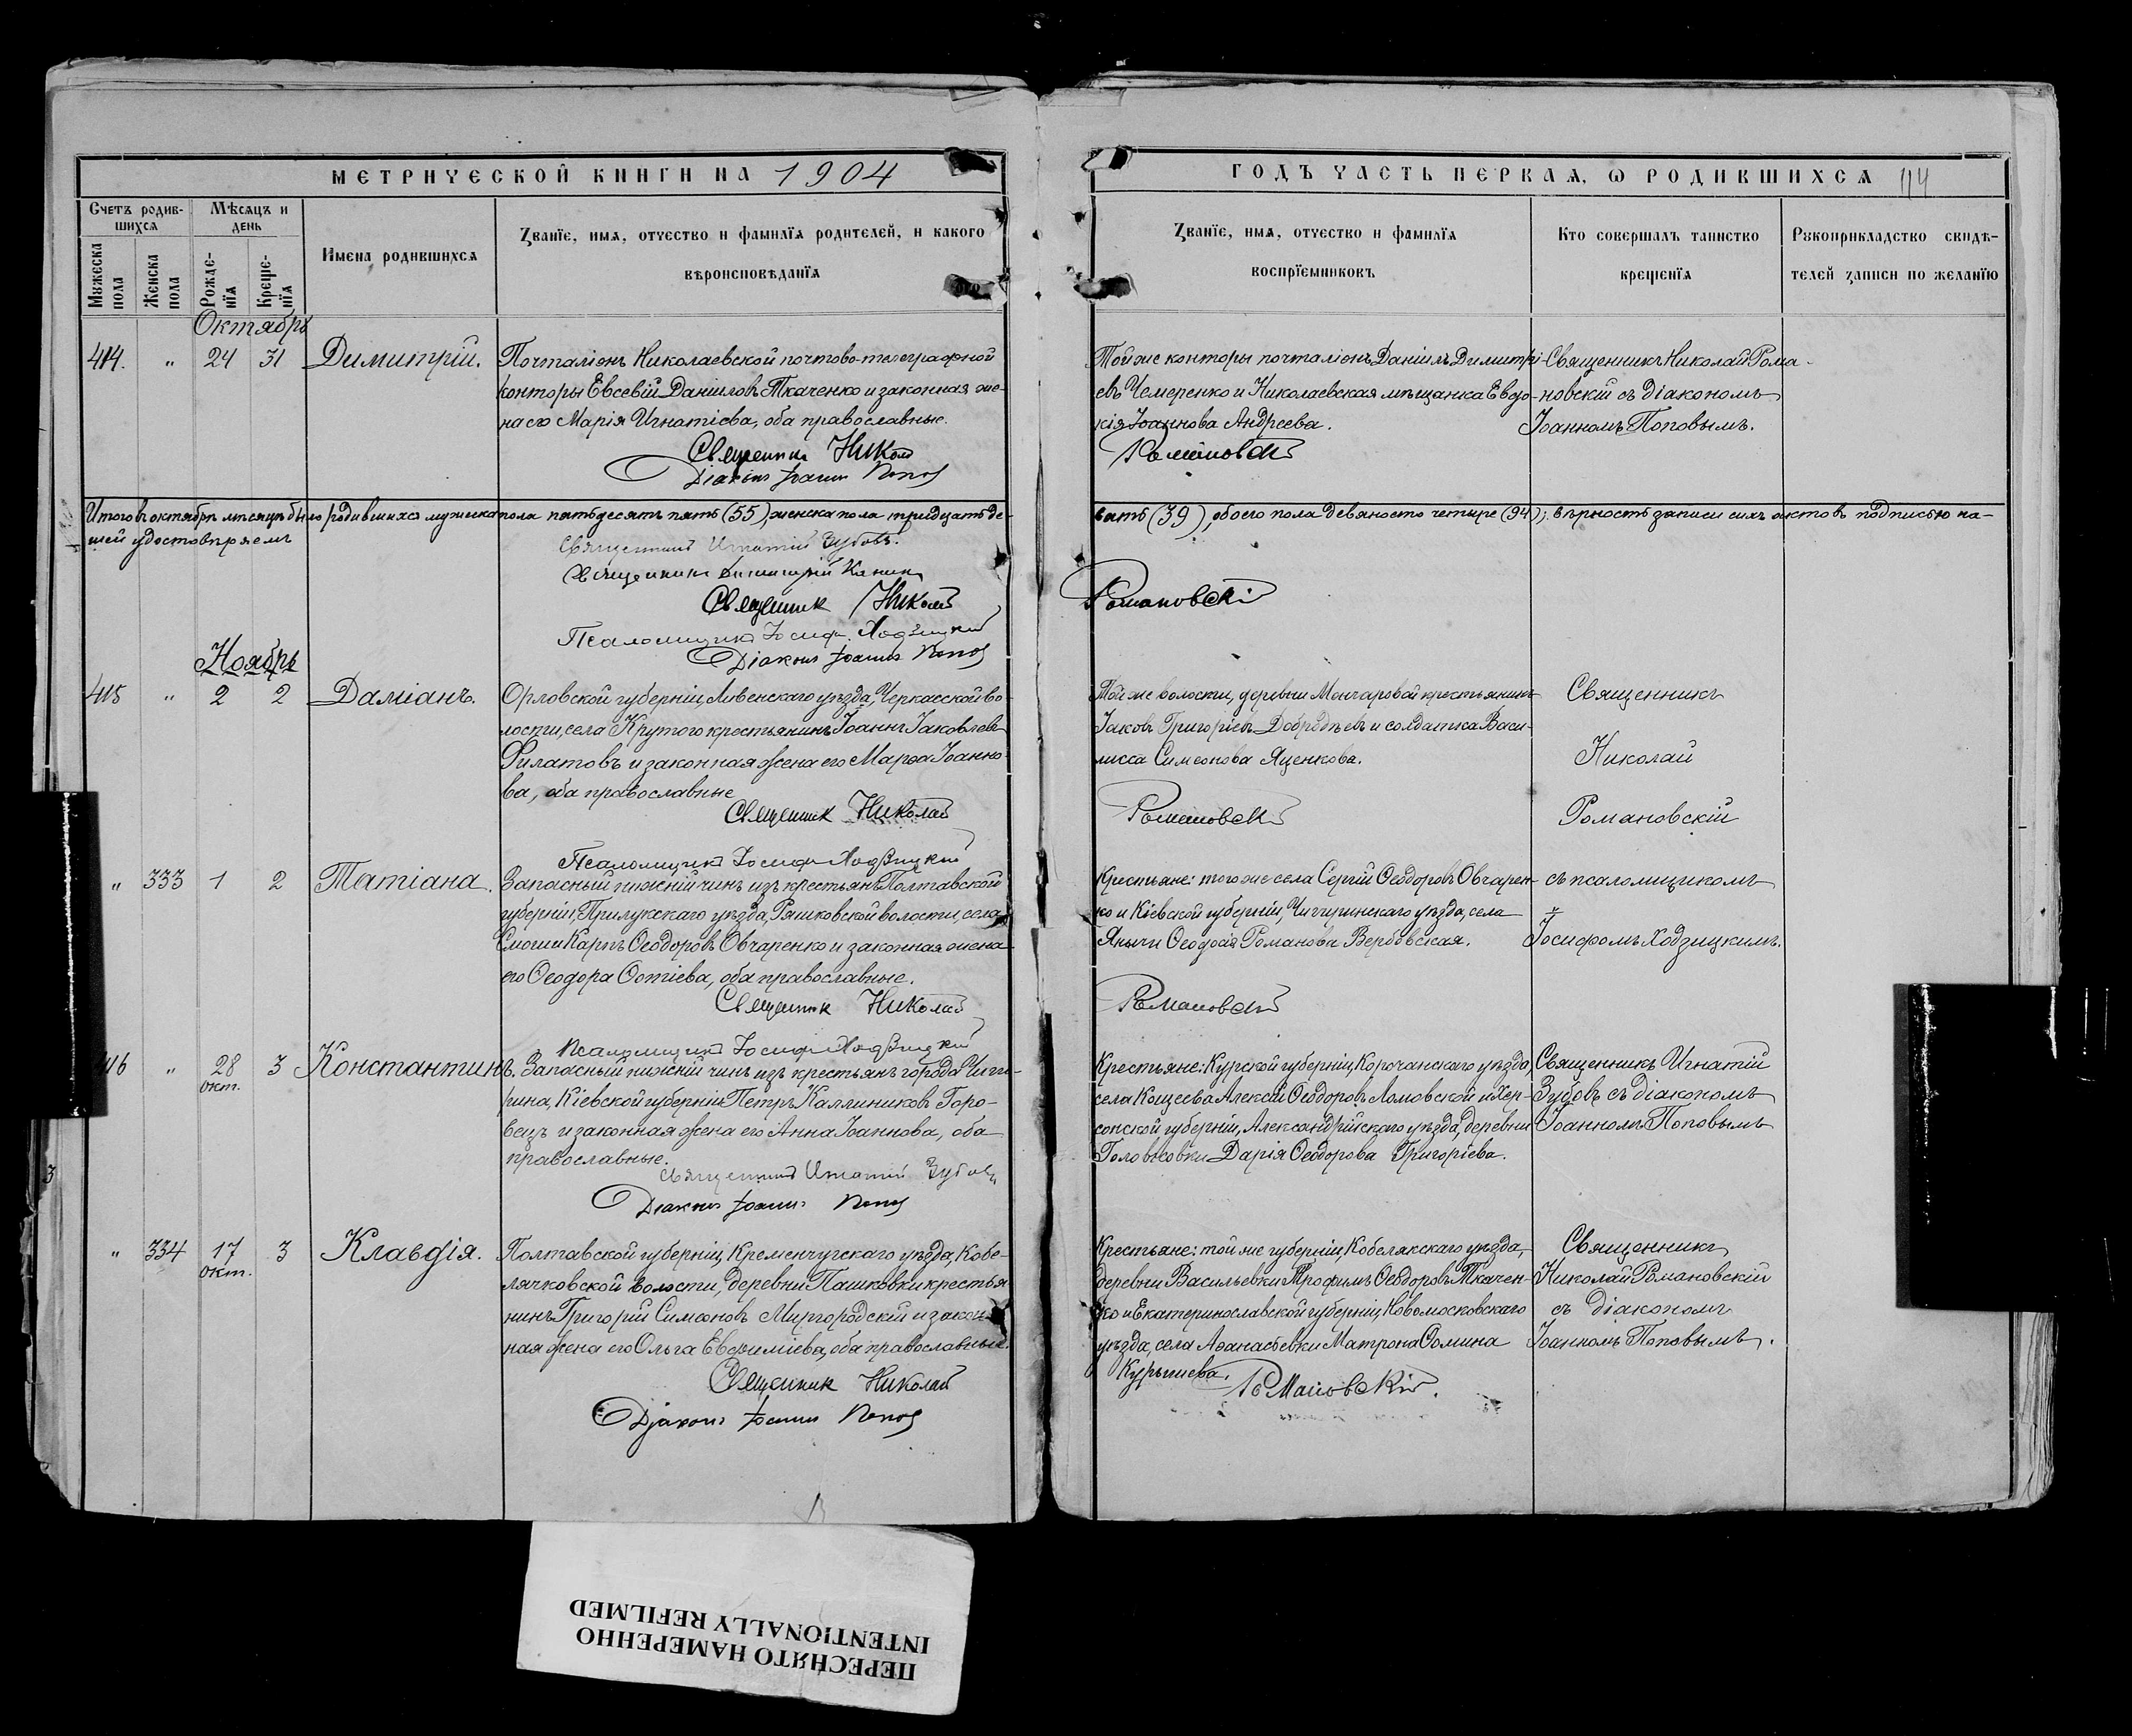 МЕТРИЧЕСКОЙ КНИГИ НА 1904
Счетъ родив-
шихся
Мѣсяцъ и
день
Мужеска
пола
Женска
пола
Рожде-
нїя
Креще-
нїя
Имена родившихся
Званїе, имя, отчество и фамилїя родителей, и какого
вѣроисповѣданїя
Октябрь
414. " 24 31 Димитрій.
Почталіонъ Николаевской почтово-телеграфной
конторы Евсевій Даніиловъ Ткаченко и законная же-
на его Марія Игнатіева, оба православные.
Священникъ Николай
Діаконъ Іоаннъ Поповъ
Итого въ октябрѣ мѣсяцѣ было родившихся мужеска пола пятьдесятъ пять (55), женска пола тридцать де-
шей удостовѣряемъ
Священникъ Игнатій Зубовъ.
Священникъ Димитрій
Священникъ Николай
Псаломщикъ Іосифъ Ходзицкій
Діаконъ Іоаннъ Поповъ
Ноябрь
415 " 2 2 Даміанъ.
Орловской губерніи, Ливенскаго уѣзда, Черкасской во-
лости, села Крутого крестьянинъ Іоаннъ Іаковлевъ
Филатовъ и законная жена его Марѳа Іоанно-
ва, оба православные
Священникъ Николай
Псаломщикъ Іосифъ Ходзицкій
" 333 1 2 Татіана.
Запасный нижній чинъ изъ крестьянъ Полтавской
губерніи, Прилукскаго уѣзда, Ряшковской волости, села
Смоши Карпъ Ѳеодоровъ Овчаренко и законная жена
его Ѳеодора Ѳотіева, оба православные.
Священникъ Николай
Псаломщикъ Іосифъ Ходзицкій
16 " 28 окт. 3 Константинъ.
Запасный нижній чинъ изъ крестьянъ города Чиги-
рина, Кіевской губерніи Петръ Каллиниковъ Горо-
вецъ и законная жена его Анна Іоаннова, оба
православные.
Священникъ Игнатій Зубовъ
Діаконъ Іоаннъ Поповъ
" 334 17 окт. 3 Клавдія.
Полтавской губерніи, Кременчугскаго уѣзда, Кобе-
лячковской волости, деревни Пашковки крестья
нинъ Григорій Симеоновъ Миргородскій и закон-
ная жена его Ольга Евфиміева, оба православные.
Священникъ Николай
Діаконъ Іоаннъ Поповъ
3
ГОДЪ ЧАСТЬ ПЕРВАЯ, Ѡ РОДИВШИХСЯ 114
Званїе, имя, отчество и фамилїя
воспрїемниковъ
Кто совершалъ таинство
крещенїя
Рукоприкладство свидѣ-
телей записи по желанїю
Той же конторы почталіонъ Даніилъ Димитрі-
евъ Чемеренко и Николаевская мѣщанка Евдо-
кія Іоаннова Андреева.
Романовскій
Священникъ Николай Рома-
новскій съ діакономъ
Іоанномъ Поповымъ.
вять (39), обоего пола девяносто четыре (94); вѣрность записи сихъ актовъ подписью на-
Романовскій
Той же волости, деревни Мончаровой крестьянинъ
Іаковъ Григоріевъ Добродѣевъ и солдатка Васи-
лисса Симеонова Яценкова.
Романовскій
Священникъ
Николай
Романовскій
Крестьяне: того же села Сергій Ѳеодоровъ Овчарен-
ко и Кіевской губерніи, Чигиринскаго уѣзда, села
Янычи Ѳеодосія Романова Вербовская.
Романовскій
съ псаломщикомъ
Іосифомъ Ходзицкимъ.
Крестьяне: Курской губерніи, Корочанскаго уѣзда,
села Кощеева Алексій Ѳеодоровъ Ломовской и Хер-
сонской губерніи, Александрійскаго уѣзда, деревни
Головковки Дарія Ѳеодорова Григоріева.
Священникъ Игнатій
Зубовъ съ діакономъ
Іоанномъ Поповымъ
Крестьяне: той же губерніи, Кобелякскаго уѣзда,
деревни Васильевки Трофимъ Ѳеодоровъ Ткачен-
ко и Екатеринославской губерніи, Новомосковскаго
уѣзда, села Аѳанасьевки Матрона Ѳомина
Курышева.
Романовскій.
Священникъ
Николай Романовскій
съ діакономъ
Іоанномъ Поповымъ.
ПЕРЕСНЯТО НАМЕРЕННО
INTENTIONALLY REFILMED